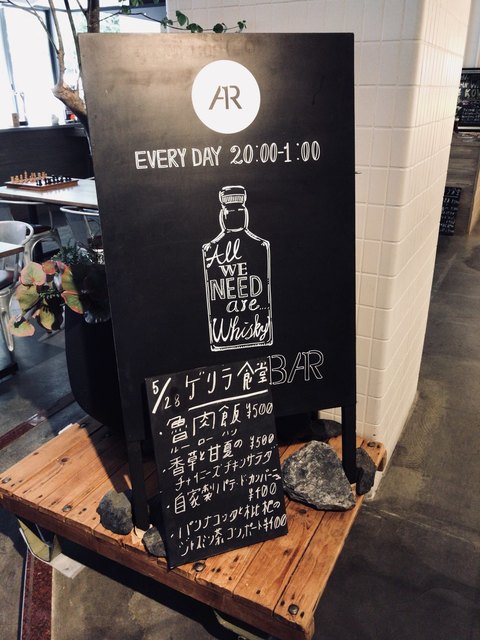 AR
EVERY DAY 20:00-1:00
All
WE
NEED
are...
Whisky
BAR
5/28 ゲリラ食堂
・魯肉飯 ¥500
ルーローハン
・香草と甘夏の ¥500
チャイニーズチキンサラダ
・自家製パテドカンパーニュ
¥400
・パンナコッタと枇杷の
ジャスミン茶コンポート¥400